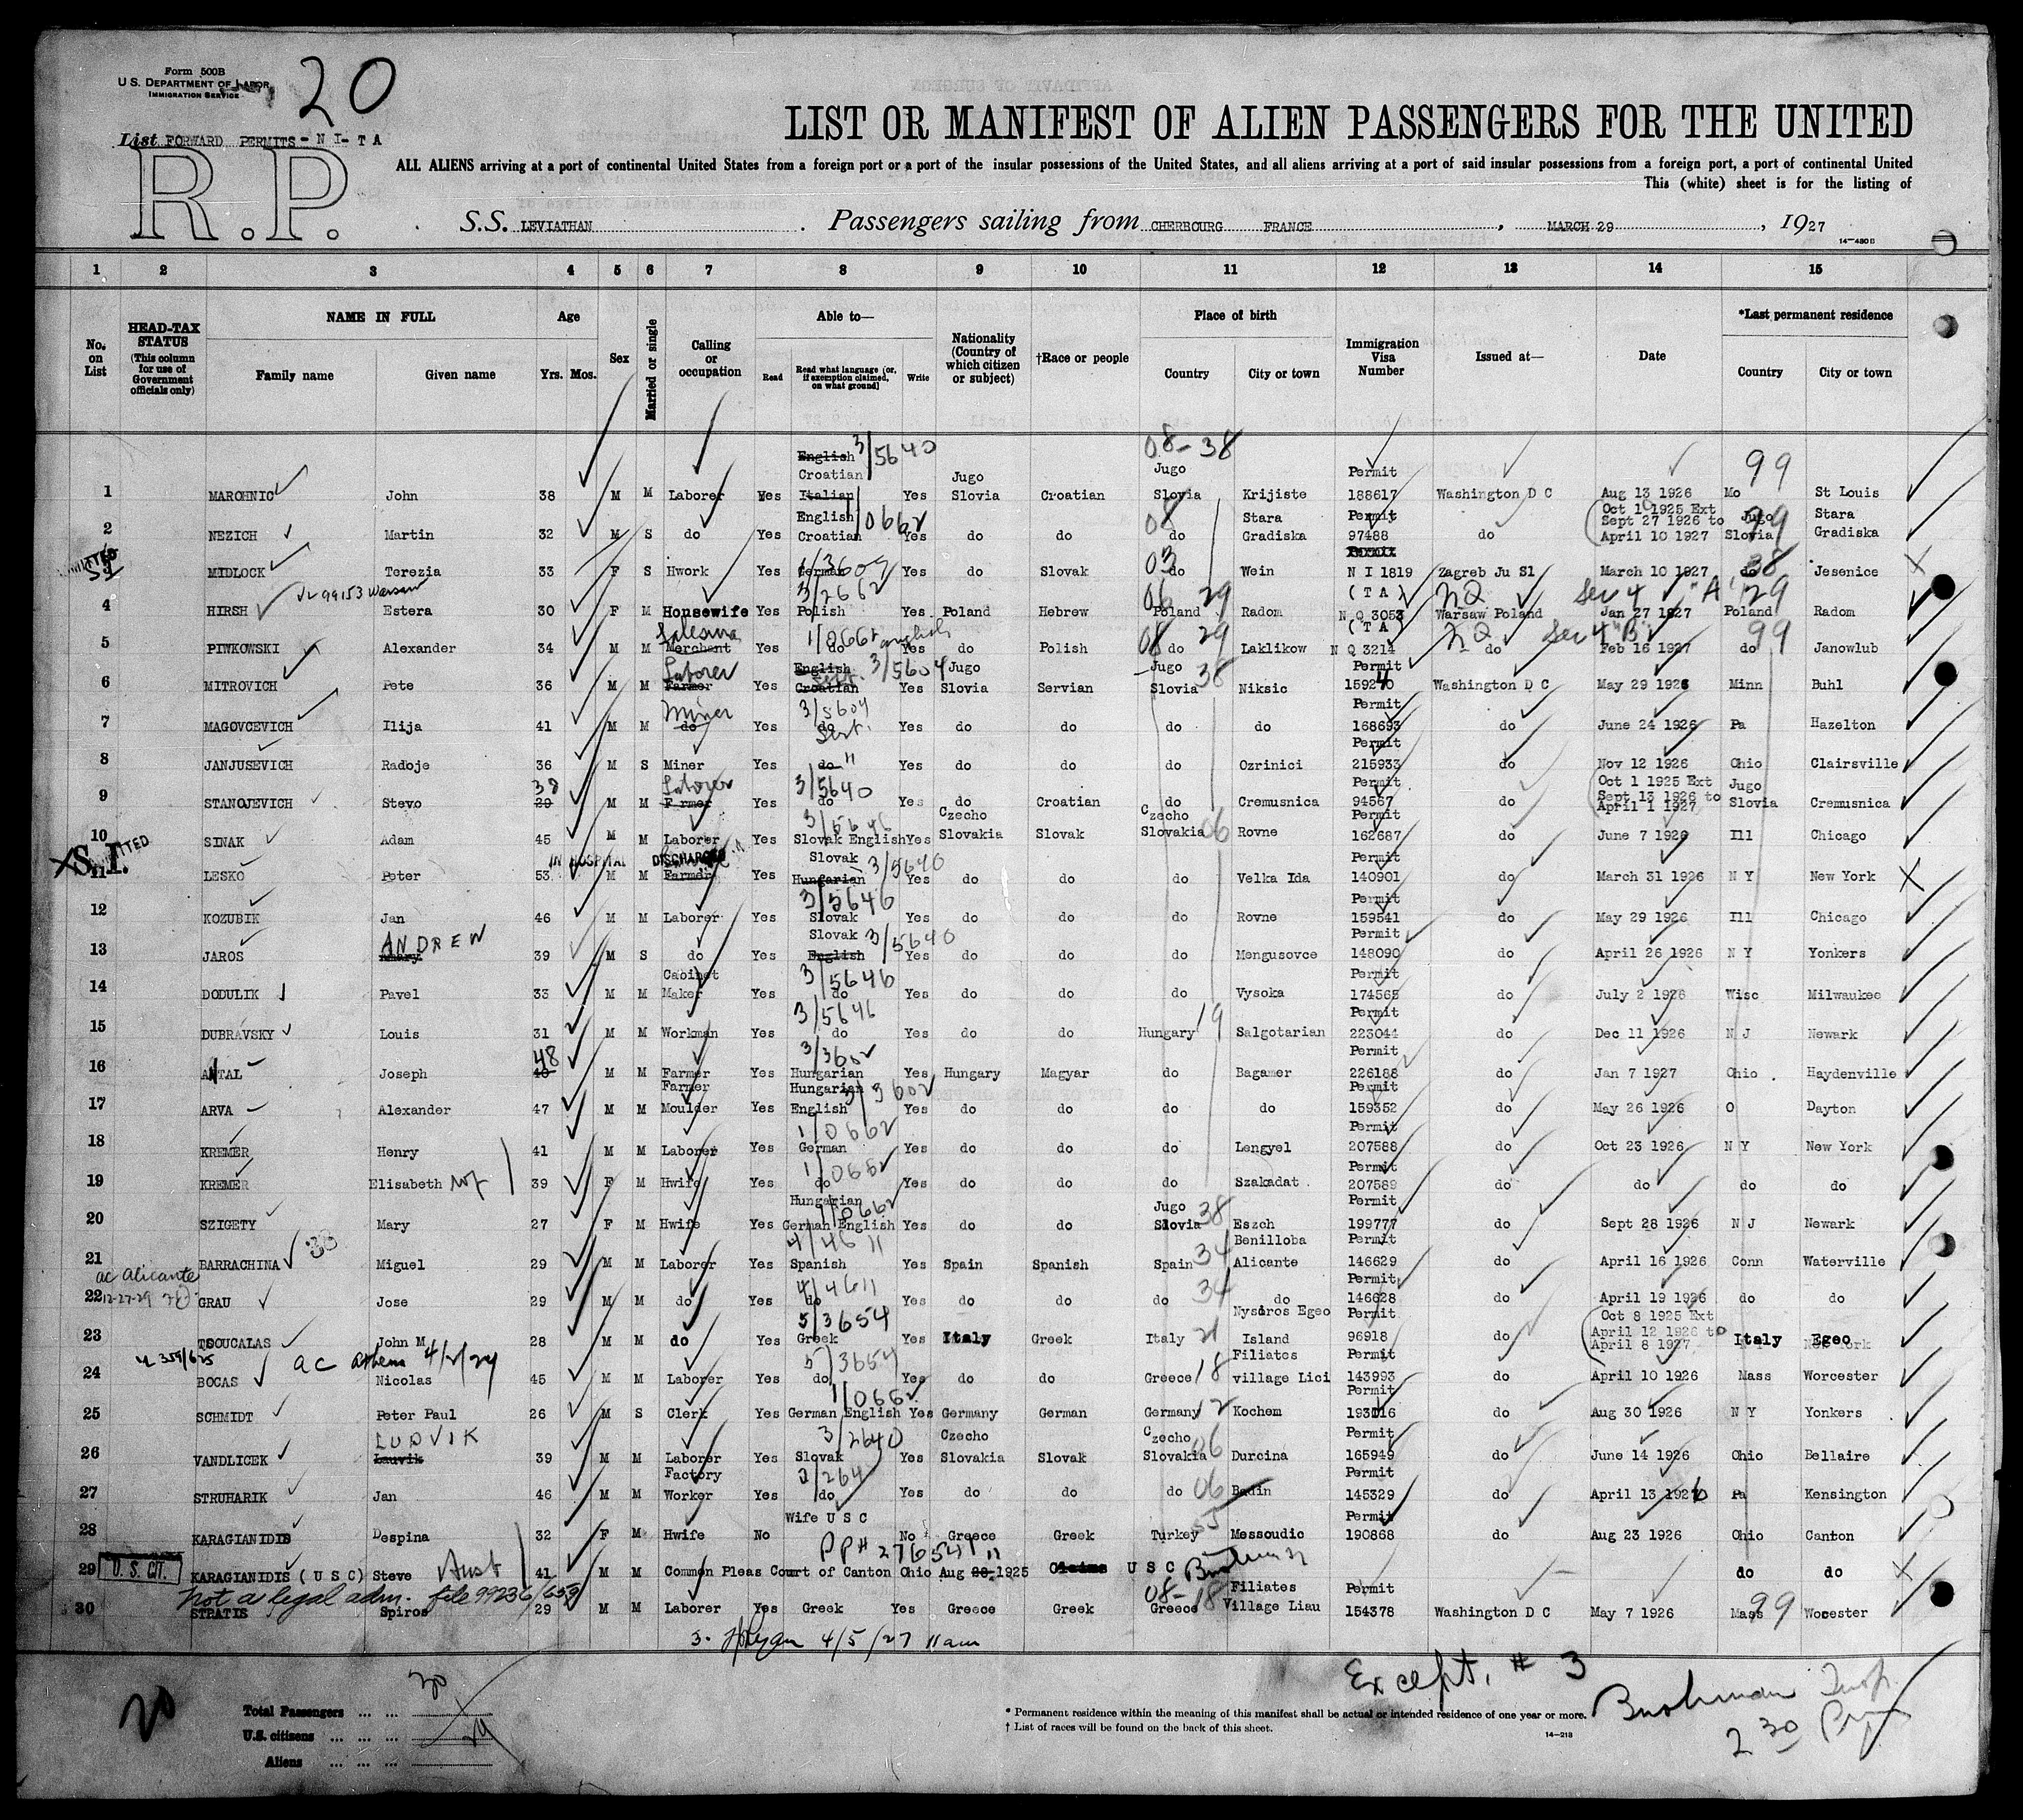 Form 500B
U.S. DEPARTMENT OF LABOR
IMMIGRATION SERVICE
20
List FORWARD PERMITS - N I - T A
R.P.
LIST OR MANIFEST OF ALIEN PASSENGERS FOR THE UNITED
ALL ALIENS arriving at a port of continental United States from a foreign port or a port of the insular possessions of the United States, and all aliens arriving at a port of said insular possessions from a foreign port, a port of continental United
This (white) sheet is for the listing of
S.S. LEVIATHAN . Passengers sailing from CHERBOURG FRANCE , MARCH 29 , 1927
14-480B
1 2 3 4 5 6 7 8 9 10 11 12 13 14 15
No. on List HEAD-TAX STATUS (This column for use of Government officials only) NAME IN FULL Family name Given name Age Yrs. Mos. Sex Married or single Calling or occupation Able to— Read Read what language [or, if exemption claimed, on what ground] Write Nationality (Country of which citizen or subject) †Race or people Place of birth Country City or town Immigration Visa Number Issued at— Date *Last permanent residence Country City or town
English 3/5640 08-38 99
Croatian Jugo Jugo Permit
1 MAROHNIC John 38 M M Laborer Yes Italian Yes Slovia Croatian Slovia Krijiste 188617 Washington D C Aug 13 1926 Mo St Louis
English 1/0662 08 Stara Permit Oct 1 1925 Ext Sept 27 1926 to Jugo 99 Stara
2 NEZICH Martin 32 M S do Yes Croatian Yes do do do Gradiska 97488 do April 10 1927 Slovia Gradiska
1/3607 03 Permit 38
3 MIDLOCK Terezia 33 F S Hwork Yes German Yes do Slovak do Wein N I 1819 Zagreb Ju Sl March 10 1927 do Jesenice
VL 99153 Warsaw 3/2662 06 29 (T A) NQ Sec 4 "A" 29
4 HIRSH Estera 30 F M Housewife Yes Polish Yes Poland Hebrew Poland Radom N Q 3053 Warsaw Poland Jan 27 1927 Poland Radom
1/0662 English 08 29 (T A) NQ Sec 4 "B" 99
5 PIWKOWSKI Alexander 34 M M Merchant Yes do Yes do Polish do Laklikow N Q 3214 do Feb 16 1927 do Janowlub
Laborer English 3/5604 Jugo Jugo 38 Permit
6 MITROVICH Pete 36 M M Farmer Yes Croatian Yes Slovia Servian Slovia Niksic 159240 Washington D C May 29 1926 Minn Buhl
Miner 3/5604
7 MAGOVCEVICH Ilija 41 M M do Yes do Yes do do do do 168693 do June 24 1926 Pa Hazelton
Sert. Permit
8 JANJUSEVICH Radoje 36 M S Miner Yes do " Yes do do do Ozrinici 215933 do Nov 12 1926 Ohio Clairsville
38 Laborer 3/5640 Permit Oct 1 1925 Ext Sept 13 1926 to Jugo
9 STANOJEVICH Stevo 29 M M Farmer Yes do Yes do Croatian do Cremusnica 94567 do April 1 1927 Slovia Cremusnica
3/5646 Czecho Czecho 06 Permit
10 SINAK Adam 45 M M Laborer Yes Slovak English Yes Slovakia Slovak Slovakia Rovne 162687 do June 7 1926 Ill Chicago
S.I. IN HOSPITAL DISCHARGED Slovak 3/5640 Permit
11 LESKO Peter 53 M M Farmer Yes Hungarian Yes do do do Velka Ida 140901 do March 31 1926 N Y New York
3/5646 Permit
12 KOZUBIK Jan 46 M M Laborer Yes Slovak Yes do do do Rovne 159541 do May 29 1926 Ill Chicago
ANDREW Slovak 3/5640 Permit
13 JAROS 39 M S do Yes English Yes do do do Mengusovce 148090 do April 26 1926 N Y Yonkers
Cabinet 3/5646 Permit
14 DODULIK Pavel 33 M M Maker Yes do Yes do do do Vysoka 174565 do July 2 1926 Wisc Milwaukee
3/5646 19 Permit
15 DUBRAVSKY Louis 31 M M Workman Yes do Yes do do Hungary Salgotarian 223044 do Dec 11 1926 N J Newark
48 3/3602 Permit
16 ANTAL Joseph 40 M M Farmer Yes Hungarian Yes Hungary Magyar do Bagamer 226188 do Jan 7 1927 Ohio Haydenville
Farmer Hungarian 3/3602 Permit
17 ARVA Alexander 47 M M Moulder Yes English Yes do do do do 159352 do May 26 1926 O Dayton
1/0662 Permit
18 KREMER Henry 41 M M Laborer Yes German Yes do do do Lengyel 207588 do Oct 23 1926 N Y New York
1/0662 Permit
19 KREMER Elisabeth wf 39 F M Hwife Yes do Yes do do do Szakadat 207589 do do do do
Hungarian 1/0662 Jugo 38 Permit
20 SZIGETY Mary 27 F M Hwife Yes German English Yes do do Slovia Eszch 199777 do Sept 28 1926 N J Newark
38 4/4611 34 Benilloba Permit
21 BARRACHINA Miguel 29 M M Laborer Yes Spanish Yes Spain Spanish Spain Alicante 146629 do April 16 1926 Conn Waterville
ac Alicante 12-27-29 4/4611 34 Permit
22 GRAU Jose 29 M M do Yes do Yes do do do do 146628 do April 19 1926 do do
5/3654 Nysiros Egeo Permit Oct 8 1925 Ext April 12 1926 to
23 TSOUCALAS John M 28 M M do Yes Greek Yes Italy Greek Italy 21 Island 96918 do April 8 1927 Italy Egeo
ac Athens 5/3654 18 Filiates Permit
24 BOCAS Nicolas 45 M M Laborer Yes do Yes do do Greece village Lici 143993 do April 10 1926 Mass Worcester
1/0662 12 Permit
25 SCHMIDT Peter Paul 26 M S Clerk Yes German English Yes Germany German Germany Kochem 193116 do Aug 30 1926 N Y Yonkers
LUDVIK 3/2640 Czecho Czecho 06 Permit
26 VANDLICEK Lauvik 39 M M Laborer Yes Slovak Yes Slovakia Slovak Slovakia Durcina 165949 do June 14 1926 Ohio Bellaire
Factory 06 Permit
27 STRUHARIK Jan 46 M M Worker Yes do Yes do do do Badin 145329 do April 13 1926 Pa Kensington
Wife U S C 55 Permit
28 KARAGIANIDIS Despina 32 F M Hwife No No Greece Greek Turkey Messoudic 190868 do Aug 23 1926 Ohio Canton
U. S. CIT.
29 KARAGIANIDIS (U S C) Steve Husb 41 M M Common Pleas Court of Canton Ohio Aug 28 1925 Claims U S C do do
Not a legal adm. file 99236/659 08-18 Filiates Permit 99
30 STRATIS Spiros 29 M M Laborer Yes Greek Yes Greece Greek Greece Village Liau 154378 Washington D C May 7 1926 Mass Wocester
4/5/27 11 am
Except. # 3
20
Total Passengers ... ... 30
U.S. citizens ... ... ...
Aliens ... ... ...
* Permanent residence within the meaning of this manifest shall be actual or intended residence of one year or more.
† List of races will be found on the back of this sheet.
14-213
Bushman Insp.
2 30 Pm